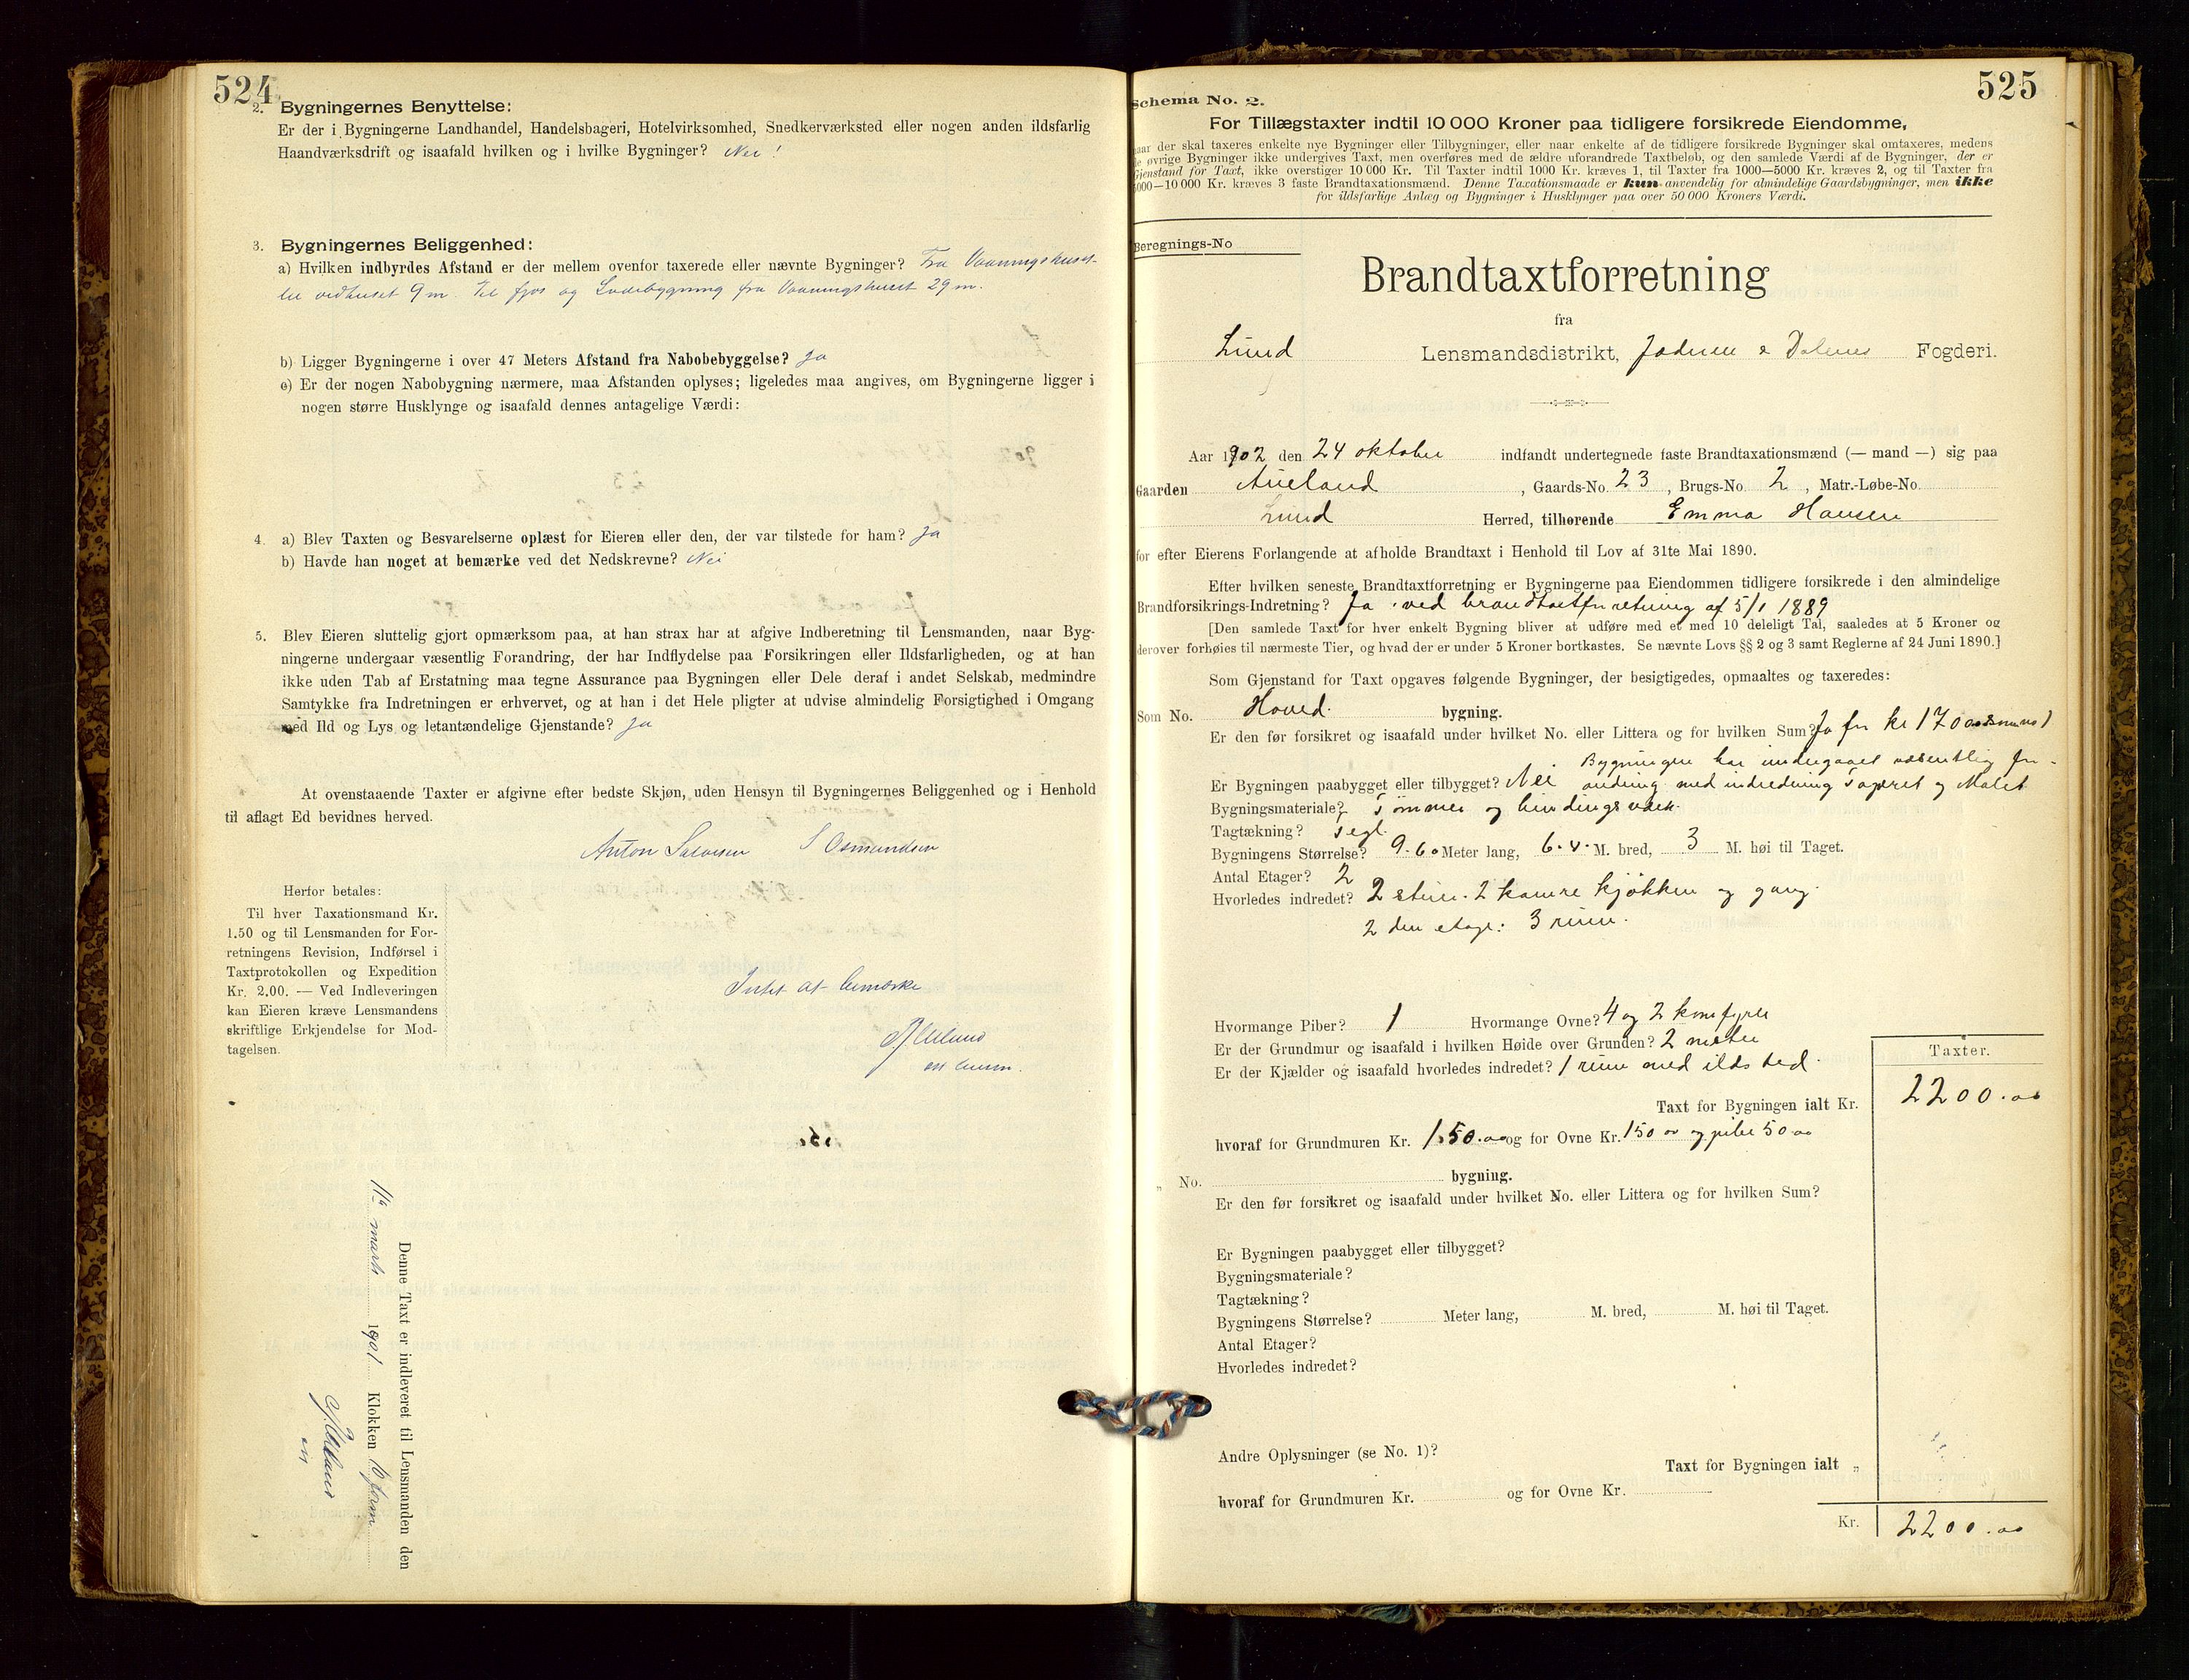 524
2. Bygningernes Benyttelse:
Er der i Bygningerne Landhandel, Handelsbageri, Hotelvirksomhed, Snedkerværksted eller nogen anden ildsfarlig
Haandværksdrift og isaafald hvilken og i hvilke Bygninger? Nei !
3. Bygningernes Beliggenhed:
a) Hvilken indbyrdes Afstand er der mellem ovenfor taxerede eller nævnte Bygninger? Fra Vaaningshuset
til vedhuset 9 m. Til fjøs og Ladebygning fra Vaaningshuset 29 m.
b) Ligger Bygningerne i over 47 Meters Afstand fra Nabobebyggelse? Ja
c) Er der nogen Nabobygning nærmere, maa Afstanden oplyses; ligeledes maa angives, om Bygningerne ligger i
nogen større Husklynge og isaafald dennes antagelige Værdi:
4. a) Blev Taxten og Besvarelserne oplæst for Eieren eller den, der var tilstede for ham? Ja
b) Havde han noget at bemærke ved det Nedskrevne? Nei
5. Blev Eieren sluttelig gjort opmærksom paa, at han strax har at afgive Indberetning til Lensmanden, naar Byg-
ningerne undergaar væsentlig Forandring, der har Indflydelse paa Forsikringen eller Ildsfarligheden, og at han
ikke uden Tab af Erstatning maa tegne Assurance paa Bygningen eller Dele deraf i andet Selskab, medmindre
Samtykke fra Indretningen er erhvervet, og at han i det Hele pligter at udvise almindelig Forsigtighed i Omgang
med Ild og Lys og letantændelige Gjenstande? Ja
At ovenstaaende Taxter er afgivne efter bedste Skjøn, uden Hensyn til Bygningernes Beliggenhed og i Henhold
til aflagt Ed bevidnes herved.
Anton Salvesen S Osmundsen
Herfor betales:
Til hver Taxationsmand Kr.
1.50 og til Lensmanden for For-
retningens Revision, Indførsel i
Taxtprotokollen og Expedition
Kr. 2.00. — Ved Indleveringen
kan Eieren kræve Lensmandens
skriftlige Erkjendelse for Mod-
tagelsen.
Intet at bemærke
Denne Taxt er indleveret til Lensmanden den
11te marts 1901 Klokken 10 form
525
Schema No. 2.
For Tillægstaxter indtil 10 000 Kroner paa tidligere forsikrede Eiendomme,
naar der skal taxeres enkelte nye Bygninger eller Tilbygninger, eller naar enkelte af de tidligere forsikrede Bygninger skal omtaxeres, medens
de øvrige Bygninger ikke undergives Taxt, men overføres med de ældre uforandrede Taxtbeløb, og den samlede Værdi af de Bygninger, der er
Gjenstand for Taxt, ikke overstiger 10 000 Kr. Til Taxter indtil 1000 Kr. kræves 1, til Taxter fra 1000—5000 Kr. kræves 2, og til Taxter fra
5000—10 000 Kr. kræves 3 faste Brandtaxationsmænd. Denne Taxationsmaade er kun anvendelig for almindelige Gaardsbygninger, men ikke
for ildsfarlige Anlæg og Bygninger i Husklynger paa over 50 000 Kroners Værdi.
Beregnings-No
Brandtaxtforretning
fra
Lund Lensmandsdistrikt, Jæderen & Dalernes Fogderi.
Aar 1902 den 24 oktober indfandt undertegnede faste Brandtaxationsmænd (— mand —) sig paa
Gaarden Aueland, Gaards-No. 23, Brugs-No 2, Matr.-Løbe-No.
Lund Herred, tilhørende Emma Hansen
for efter Eierens Forlangende at afholde Brandtaxt i Henhold til Lov af 31te Mai 1890.
Efter hvilken seneste Brandtaxtforretning er Bygningerne paa Eiendommen tidligere forsikrede i den almindelige
Brandforsikrings-Indretning? Ja ved brandtaxtforretning af 5/1 1889
[Den samlede Taxt for hver enkelt Bygning bliver at udføre med et med 10 deleligt Tal, saaledes at 5 Kroner og
derover forhøies til nærmeste Tier, og hvad der er under 5 Kroner bortkastes. Se nævnte Lovs §§ 2 og 3 samt Reglerne af 24 Juni 1890.]
Som Gjenstand for Taxt opgaves følgende Bygninger, der besigtigedes, opmaaltes og taxeredes:
Som No. Hoved bygning.
Er den før forsikret og isaafald under hvilket No. eller Littera og for hvilken Sum? Ja for kr 1700
Bygningen har undergaaet væsentlig for-
Er Bygningen paabygget eller tilbygget? Nei andring med indredning Tapeset og Malet
Bygningsmateriale? Tømmer og bindingsværk.
Tagtækning? Tegl.
Bygningens Størrelse? 9.60 Meter lang, 6.4. M. bred, 3 M. høi til Taget.
Antal Etager? 2
Hvorledes indredet? 2 stuer. 2 kamre kjøkken og gang.
2 den etage: 3 rum.
Hvormange Piber? 1 Hvormange Ovne? 4 og 2 komfyrer
Er der Grundmur og isaafald i hvilken Høide over Grunden? 2 meter
Er der Kjælder og isaafald hvorledes indredet? 1 rum med ildsted.
Taxter.
Taxt for Bygningen ialt Kr. 2200.00
hvoraf for Grundmuren Kr. 150.00 og for Ovne Kr. 150 00 og pibe 50.00
„ No. bygning.
Er den før forsikret og isaafald under hvilket No. eller Littera og for hvilken Sum?
Er Bygningen paabygget eller tilbygget?
Bygningsmateriale?
Tagtækning?
Bygningens Størrelse? Meter lang, M. bred, M. høi til Taget.
Antal Etager?
Hvorledes indredet?
Andre Oplysninger (se No. 1)?
Taxt for Bygningen ialt „
hvoraf for Grundmuren Kr. og for Ovne Kr.
Kr. 2200.00